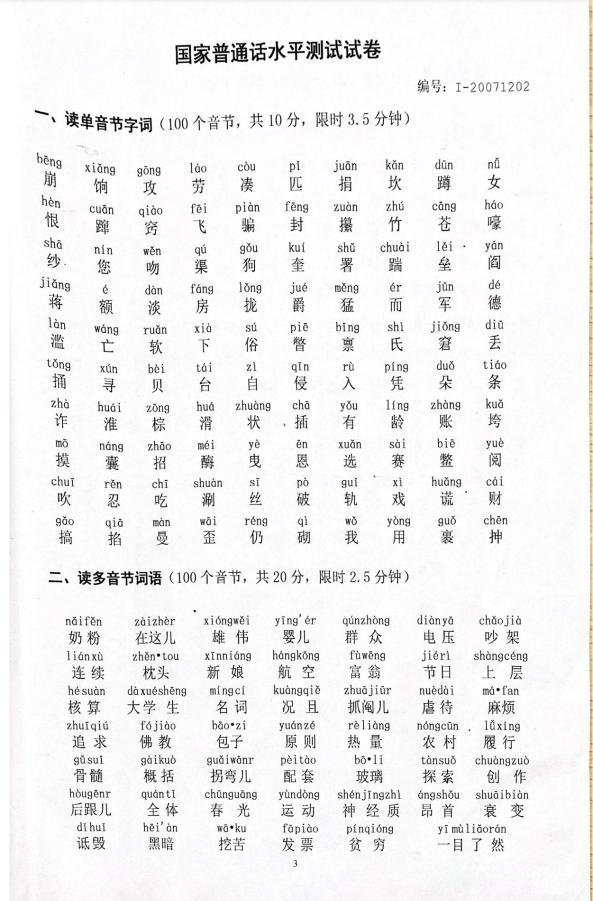 国家普通话水平测试试卷
编号：I-20071202
一、读单音节字词（100个音节，共10分，限时3.5分钟）
bēng xiǎng gōng láo còu pǐ juān kǎn dūn nǚ
崩 饷 攻 劳 凑 匹 捐 坎 蹲 女
hèn cuān qiào fēi piàn fēng zuàn zhú cāng háo
恨 蹿 窍 飞 骗 封 攥 竹 苍 嚎
shā nín wěn qú gǒu kuí shǔ chuài lěi yán
纱 您 吻 渠 狗 奎 署 踹 垒 阎
jiǎng é dàn fáng lǒng jué měng ér jūn dé
蒋 额 淡 房 拢 爵 猛 而 军 德
làn wáng ruǎn xià sú piē bǐng shì jiǒng diū
滥 亡 软 下 俗 瞥 禀 氏 窘 丢
tǒng xún bèi tái zì qīn rù píng duǒ tiáo
捅 寻 贝 台 自 侵 入 凭 朵 条
zhà huái zōng huá zhuàng chā yǒu líng zhàng kuǎ
诈 淮 棕 滑 状 插 有 龄 账 垮
mō náng zhāo méi yè ēn xuǎn sài biē yuè
摸 囊 招 酶 曳 恩 选 赛 鳖 阅
chuī rěn chī shuàn sī pò guǐ xì huǎng cái
吹 忍 吃 涮 丝 破 轨 戏 谎 财
gǎo qiā màn wāi réng qì wǒ yòng guǒ chēn
搞 掐 曼 歪 仍 砌 我 用 裹 抻
二、读多音节词语（100个音节，共20分，限时2.5分钟）
nǎifěn zàizhèr xióngwěi yīng'ér qúnzhòng diànyā chǎojià
奶粉 在这儿 雄伟 婴儿 群众 电压 吵架
liánxù zhěn•tou xīnniáng hángkōng fùwēng jiérì shàngcéng
连续 枕头 新娘 航空 富翁 节日 上层
hésuàn dàxuéshēng míngcí kuàngqiě zhuājiūr nüèdài má•fan
核算 大学生 名词 况且 抓阄儿 虐待 麻烦
zhuīqiú fójiào bāo•zi yuánzé rèliàng nóngcūn lǚxíng
追求 佛教 包子 原则 热量 农村 履行
gǔsuǐ gàikuò guǎiwānr pèitào bō•li tànsuǒ chuàngzuò
骨髓 概括 拐弯儿 配套 玻璃 探索 创作
hòugēnr quántǐ chūnguāng yùndòng shénjīngzhì ángshǒu shuāibiàn
后跟儿 全体 春光 运动 神经质 昂首 衰变
dǐhuǐ hēi'àn wā•ku fāpiào pínqióng yīmùliǎorán
诋毁 黑暗 挖苦 发票 贫穷 一目了然
3